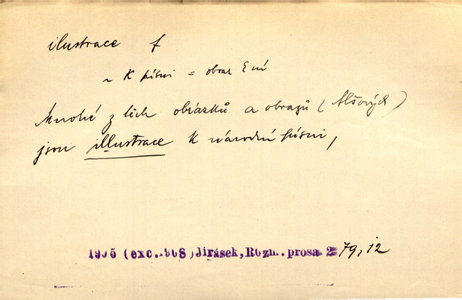 ilustrace f
~ K písni = obraz
Mnohé z těch obrázků a obrazů (Alšových)
jsou illustrace k národní písni,
1905 (exc. 1968) Jirásek, Rozm. prosa 2 79,12